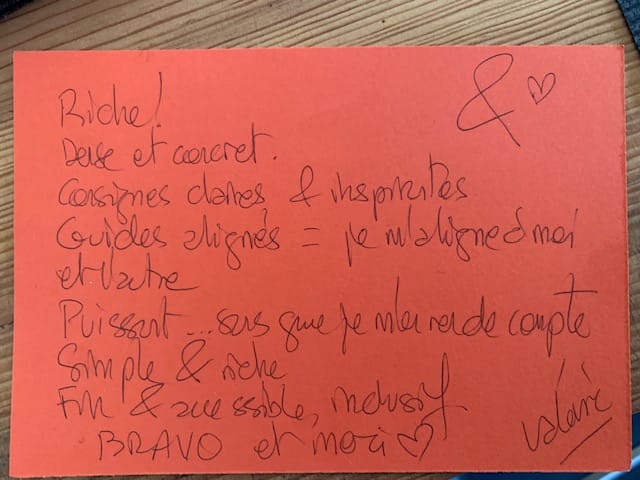 Riche! & ♡
Dense et concret.
Consignes claires & inspirantes
Guides alignés = je m'aligne à moi
et l'autre
Puissant... sans que je m'en rende compte
Simple & riche
Fin & accessible, inclusif.
BRAVO et merci ♡
Valérie